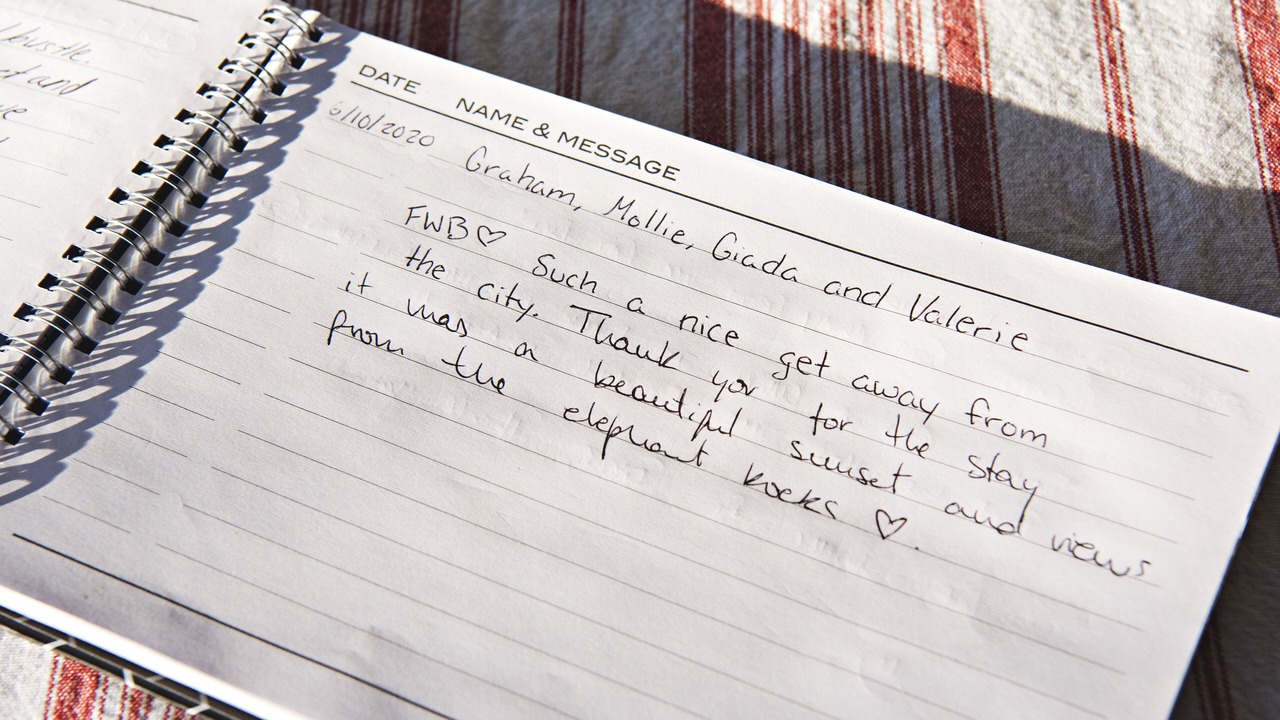 bustle.
and
DATE NAME & MESSAGE
6/10/2020 Graham, Mollie, Giada and Valerie
FWB♡ Such a nice get away from
the city. Thank you for the stay
it was a beautiful sunset and views
from the elephant rocks ♡.